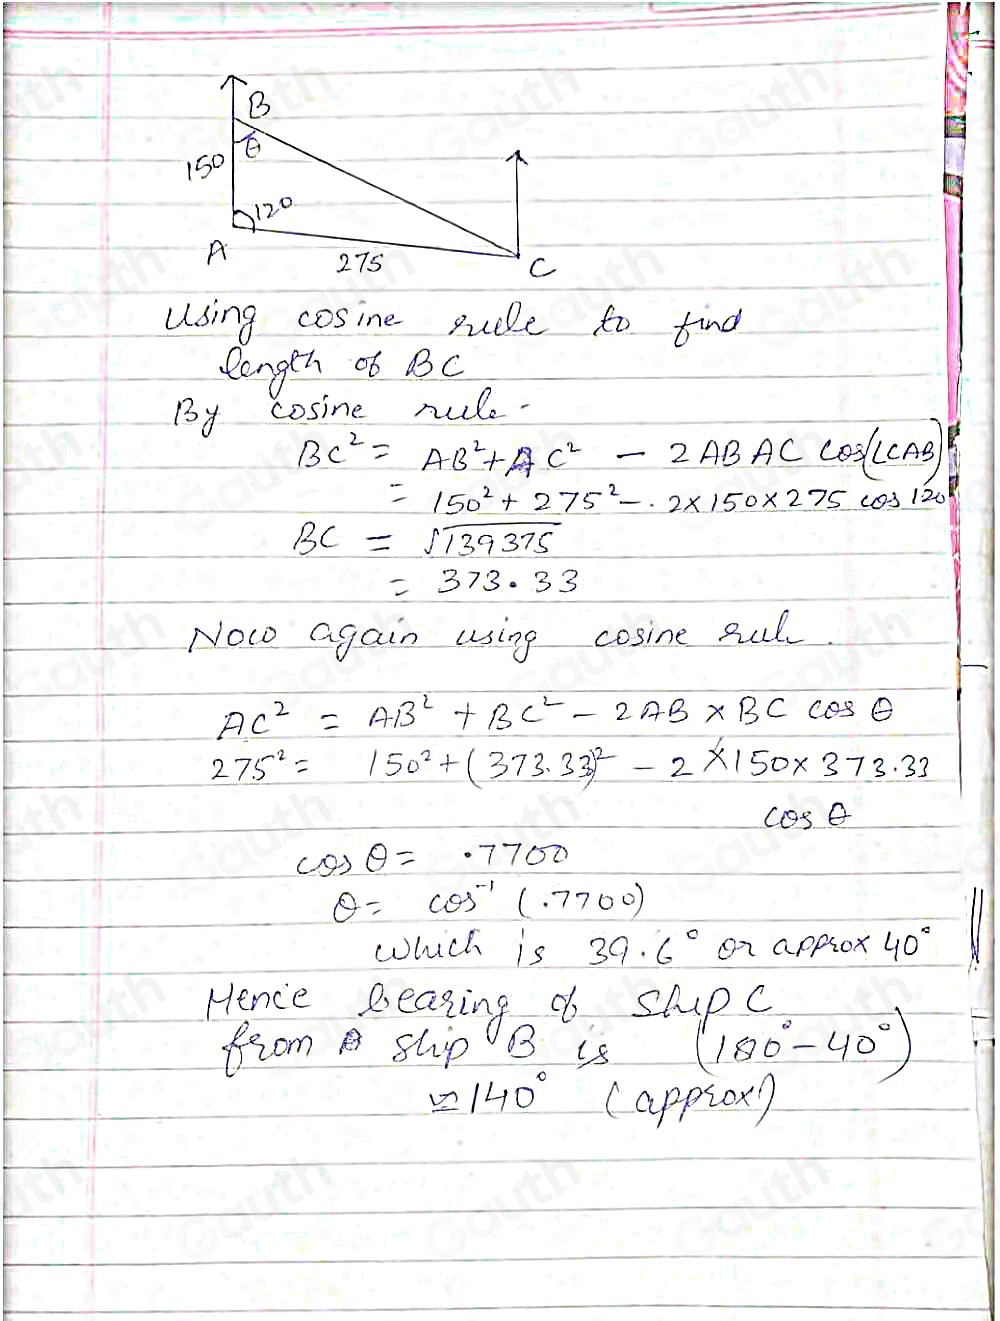 B
θ
150
120
A
275
C
Using cosine rule to find
length of BC
By cosine rule-
BC² = AB² + AC² - 2ABAC cos(∠CAB)
= 150² + 275² - . 2×150×275 cos 120
BC = √139375
= 373.33
Now again using cosine rule.
AC² = AB² + BC² - 2AB × BC cos θ
275² = 150² + (373.33)² - 2 × 150 × 373.33
cos θ
cos θ = .7700
θ = cos⁻¹ (.7700)
which is 39.6° or approx 40°
Hence bearing of ship C
from ship B is (180° - 40°)
≃ 140° (approx)
Gauth